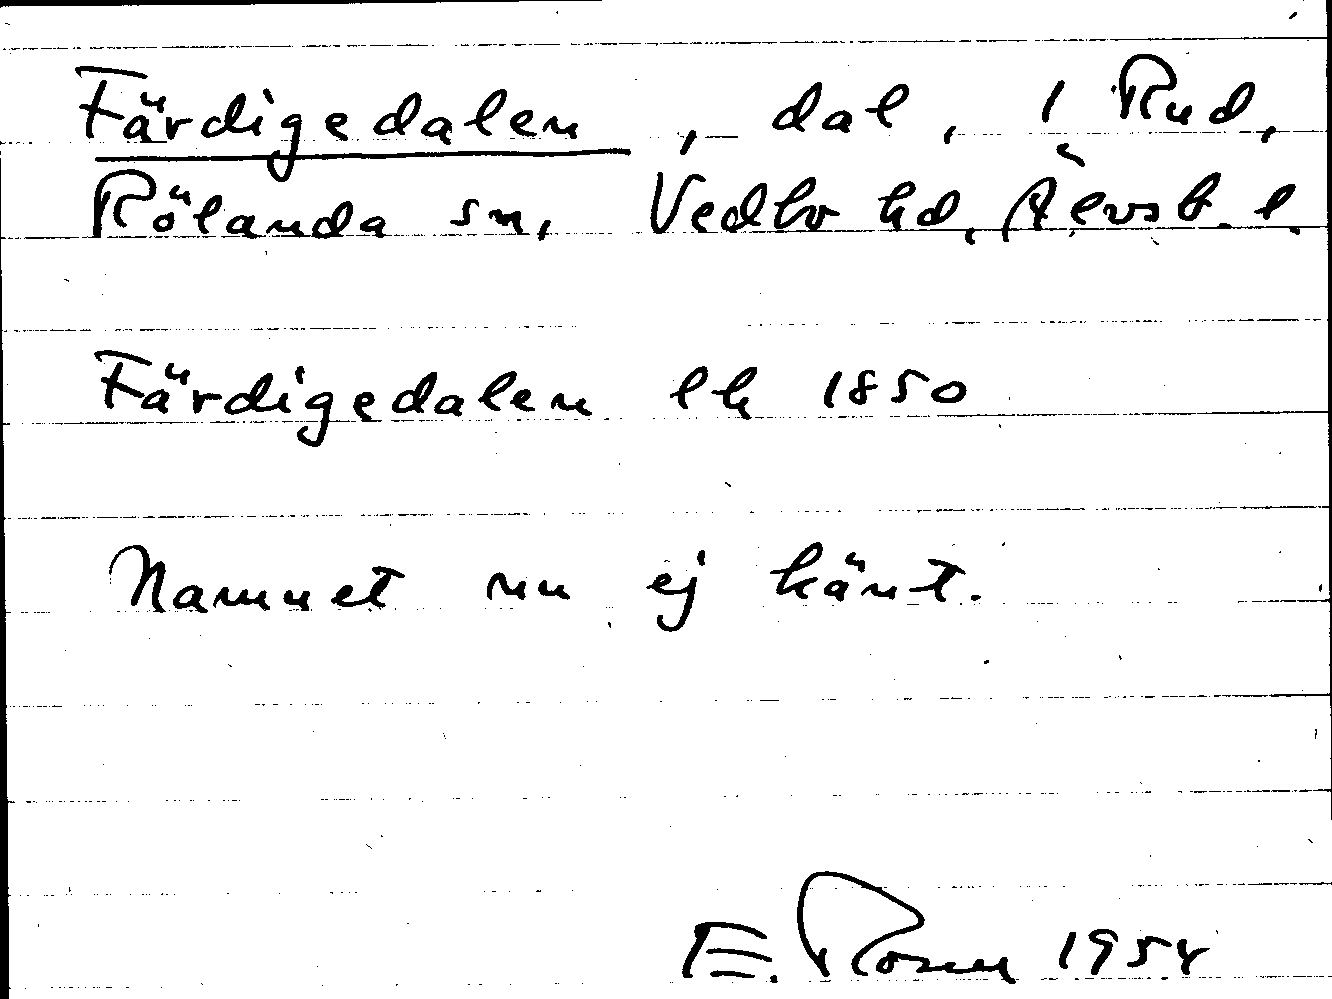 Färdigedalen, dal, 1 Rud,
Rölanda sn, Vedbo hd, Älvsb. l.
Färdigedalen lh 1850
Namnet nu ej känt.
E. Rosén 1954